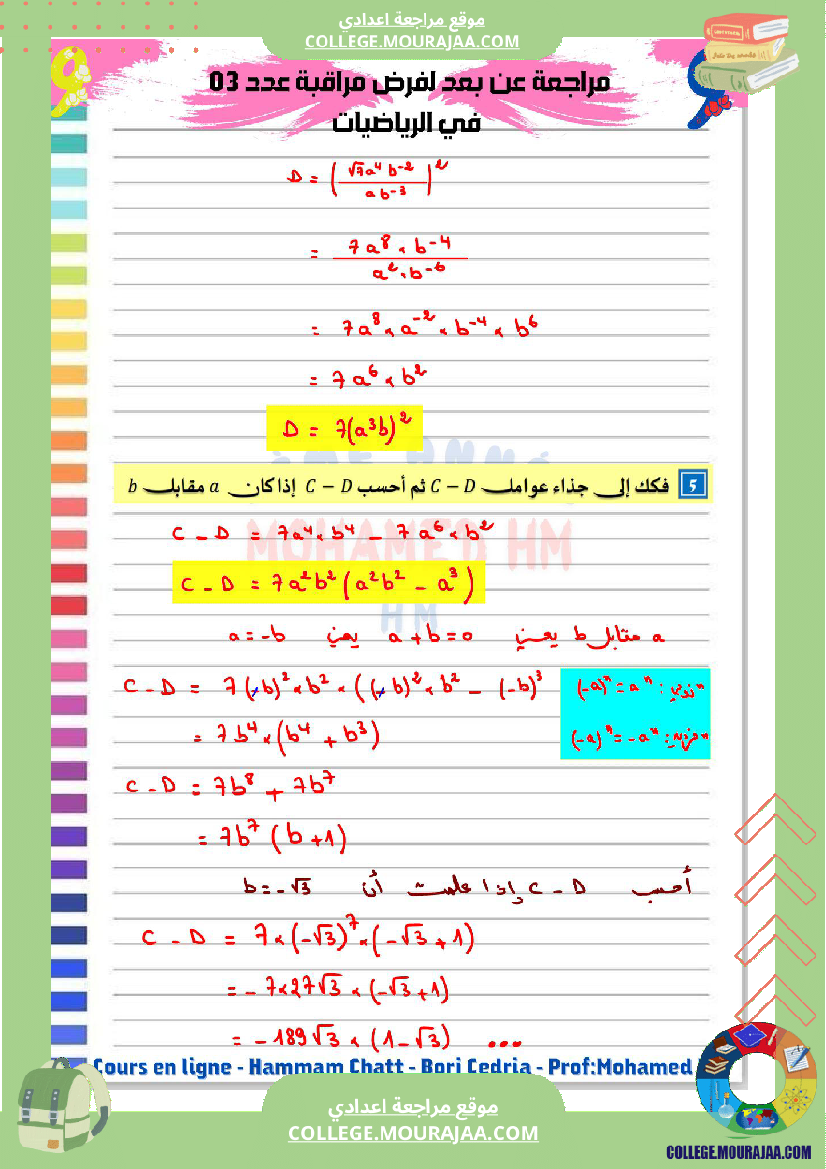 موقع مراجعة اعدادي
COLLEGE.MOURAJAA.COM
مراجعة عن بعد لفرض مراقبة عدد 03
في الرياضيات
D = (√7a⁴ b⁻² / ab⁻³)²
= 7a⁸ × b⁻⁴ / a² × b⁻⁶
= 7a⁸ × a⁻² × b⁻⁴ × b⁶
= 7a⁶ × b²
D = 7(a³b)²
5 فكك إلى جذاء عوامل C − D ثم أحسب C − D إذا كان a مقابل b
C - D = 7a⁴ × b⁴ - 7a⁶ × b²
MOHAMED HM
C - D = 7a²b² (a²b² - a³)
HM
a مقابل b يعني a + b = 0 يعني a = -b
C - D = 7(-b)² × b² × ((-b)² × b² - (-b)³
n زوجي : (-a)ⁿ = aⁿ
= 7b⁴ × (b⁴ + b³)
n فردي : (-a)ⁿ = -aⁿ
C - D = 7b⁸ + 7b⁷
= 7b⁷ (b + 1)
أحسب C - D إذا علمت أن b = -√3
C - D = 7 × (-√3)⁷ × (-√3 + 1)
= - 7 × 27√3 × (-√3 + 1)
= - 189√3 × (1 - √3) ...
Cours en ligne - Hammam Chatt - Borj Cedria - Prof:Mohamed
موقع مراجعة اعدادي
COLLEGE.MOURAJAA.COM
COLLEGE.MOURAJAA.COM